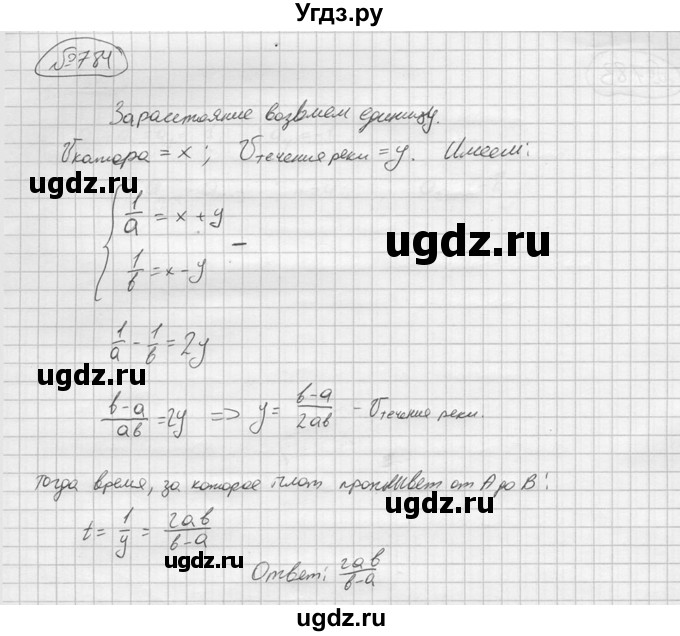 Угдз.ру
№784
За расстояние возьмем единицу.
Vкатера = x; Vтечения реки = y. Имеем:
ugdz.ru
1/a = x + y
ugdz.ru
1/b = x - y
ugdz.ru
1/a - 1/b = 2y
ugdz.ru
(b-a)/ab = 2y => y = (b-a)/2ab - Vтечения реки.
ugdz.ru
тогда время, за которое плот проплывет от A до B:
t = 1/y = 2ab/(b-a)
ugdz.ru
Ответ: 2ab/(b-a)
ugdz.ru
ugdz.ru